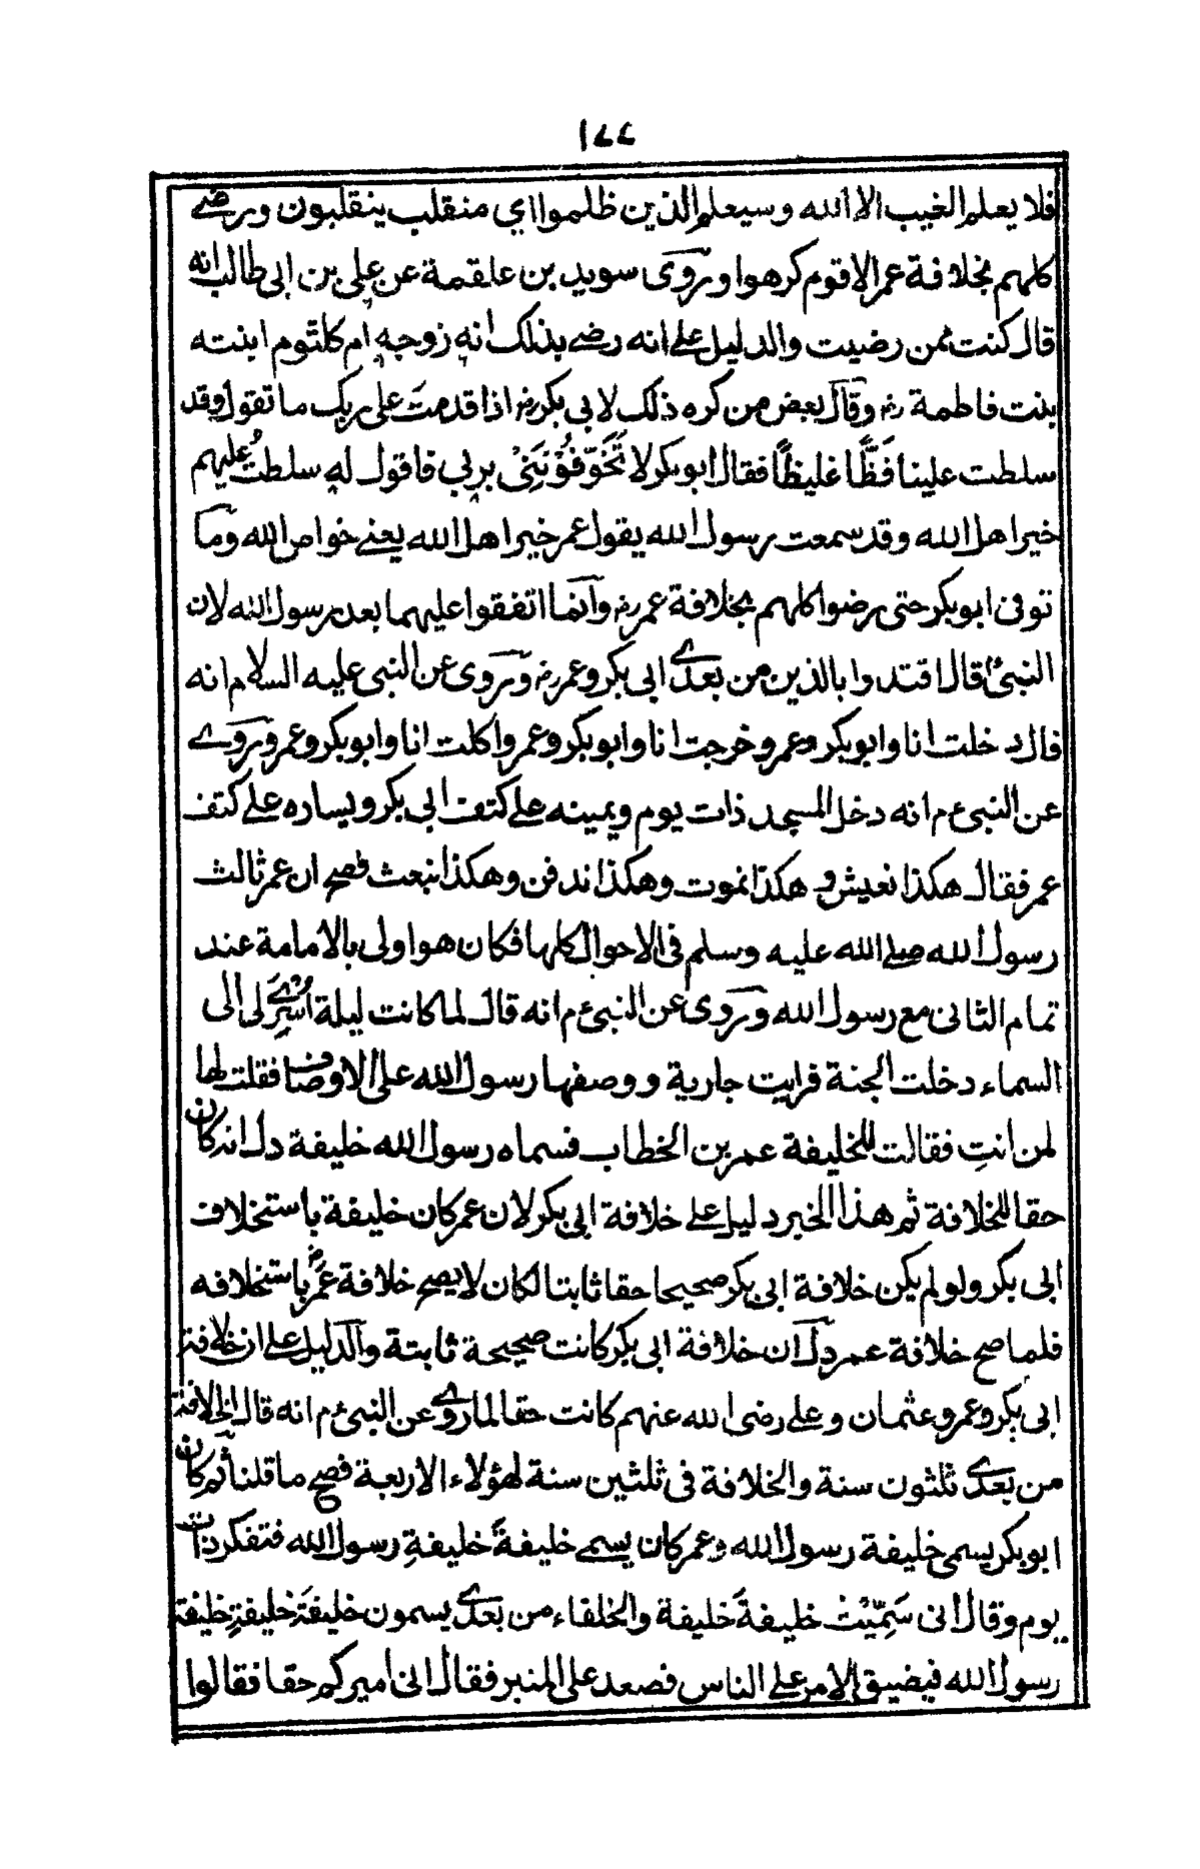 ١٧٧
فلا يعلم الغيب الا الله وسيعلم الذين ظلموا اي منقلب ينقلبون ورضے
كلهم بخلافة عمر الا قوم كرهوا وروى سويد بن علقمة عن علي بن ابي طالب انه
قال كنت ممن رضيت والدليل علے انه رضے بذلك انه زوجه ام كلثوم ابنته
بنت فاطمة رض وقال بعض من كره ذلك لابي بكر رض اذا قدمتَ على ربك ما تقول وقد
سلطت علينا فَظًّا غليظًا فقال ابو بكر لا تُخَوِّفُوْنَنِيْ بربي فاقول له سلطتُ عليهم
خير اهل الله وقد سمعت رسول الله يقول عمر خير اهل الله يعنے خواص الله وما
توفى ابو بكر حتى رضوا كلهم بخلافة عمر رض وانما اتفقوا عليهما بعد رسول الله لان
النبيؐ قال اقتدوا بالذين من بعدے ابي بكر وعمر رض وروى عن النبي عليه السلام انه
قال دخلت انا وابو بكر وعمر وخرجت انا وابو بكر وعمر واكلت انا وابو بكر وعمر وروے
عن النبيءم انه دخل المسجد ذات يوم ويمينه علے كتف ابي بكر ويساره علے كتف
عمر فقال هكذا نعيش و هكذا نموت وهكذا ندفن وهكذا نبعث فصح ان عمر ثالث
رسول الله صلے الله عليه وسلم فى الاحوال كلها فكان هو اولى بالامامة عند
تمام الثانى مع رسول الله وروى عن النبيءم انه قال لما كانت ليلة اُسْرِےَ لى الى
السماء دخلت الجنة فرايت جارية ووصفها رسول الله على الاوصاف فقلت لها
لمن انتِ فقالت للخليفة عمر بن الخطاب فسماه رسول الله خليفة دل انه كان
حقا للخلافة ثم هذا الخبر دليل علے خلافة ابى بكر لان عمر كان خليفة باستخلاف
ابى بكر ولو لم يكن خلافة ابى بكر صحيحا حقا ثابتا لكان لا يصح خلافة عمرؓ باستخلافه
فلما صح خلافة عمر دل ان خلافة ابى بكر كانت صحيحة ثابتة والدليل علے ان خلافة
ابى بكر وعمر وعثمان وعلے رضى الله عنهم كانت حقا لما روے عن النبيءم انه قال الخلافة
من بعدے ثلثون سنة والخلافة فى ثلثين سنة لهؤلاء الاربعة فصح ما قلنا ثم كان
ابو بكر يسمى خليفة رسول الله وعمر كان يسمے خليفةَ خليفةِ رسول الله فتفكر ذات
يوم وقال انى سَمِّيْتُ خليفةَ خليفة والخلفاء من بعدے يسمون خليفةَ خليفةِ خليفة
رسول الله فيضيق الامر علے الناس فصعد على المنبر فقال انى اميركم حقا فقالوا